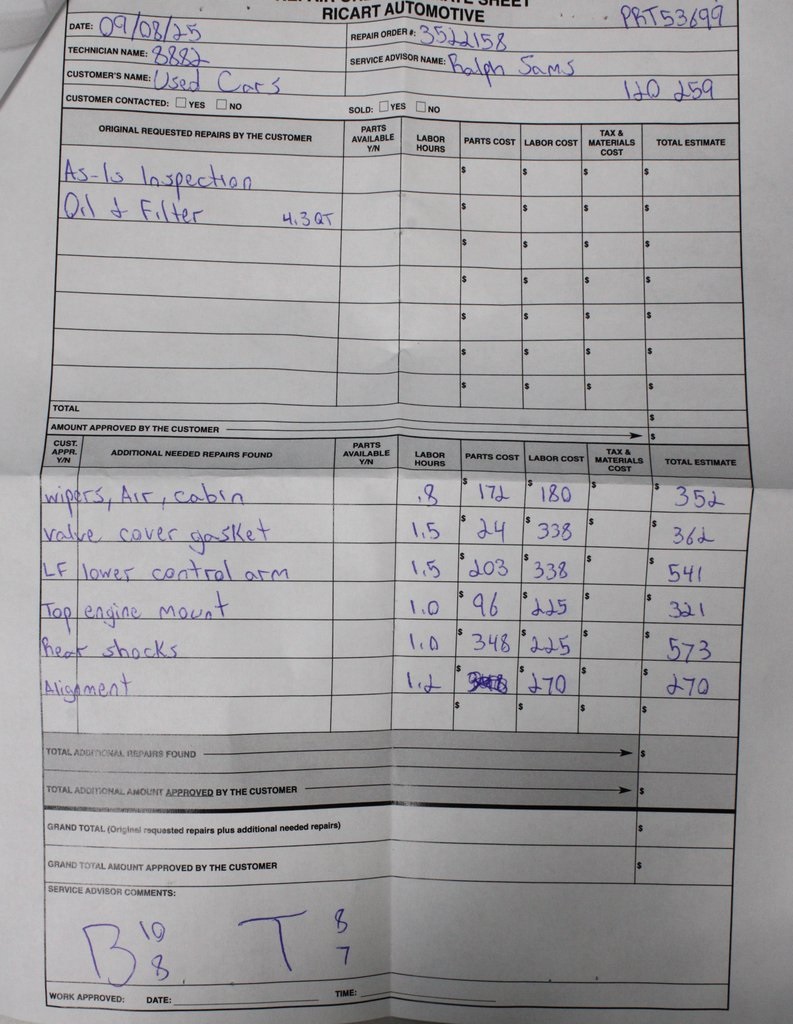 RICART AUTOMOTIVE
PRT53699
DATE: 09/08/25 REPAIR ORDER #: 3522158
TECHNICIAN NAME: 8882 SERVICE ADVISOR NAME: Ralph Sams
CUSTOMER'S NAME: Used Cars 120 259
CUSTOMER CONTACTED: YES NO SOLD: YES NO
ORIGINAL REQUESTED REPAIRS BY THE CUSTOMER PARTS AVAILABLE Y/N LABOR HOURS PARTS COST LABOR COST TAX & MATERIALS COST TOTAL ESTIMATE
As-Is Inspection $ $ $ $
Oil & Filter 4.3 QT $ $ $ $
$ $ $ $
$ $ $ $
$ $ $ $
$ $ $ $
$ $ $ $
TOTAL $
AMOUNT APPROVED BY THE CUSTOMER $
CUST. APPR. Y/N ADDITIONAL NEEDED REPAIRS FOUND PARTS AVAILABLE Y/N LABOR HOURS PARTS COST LABOR COST TAX & MATERIALS COST TOTAL ESTIMATE
wipers, Air, cabin .8 $ 172 $ 180 $ $ 352
valve cover gasket 1.5 $ 24 $ 338 $ $ 362
LF lower control arm 1.5 $ 203 $ 338 $ $ 541
Top engine mount 1.0 $ 96 $ 225 $ $ 321
Rear shocks 1.0 $ 348 $ 225 $ $ 573
Alignment 1.2 $ $ 270 $ $ 270
$ $ $ $
TOTAL ADDITIONAL REPAIRS FOUND $
TOTAL ADDITIONAL AMOUNT APPROVED BY THE CUSTOMER $
GRAND TOTAL (Original requested repairs plus additional needed repairs) $
GRAND TOTAL AMOUNT APPROVED BY THE CUSTOMER $
SERVICE ADVISOR COMMENTS:
B 10 8 T 8 7
WORK APPROVED: DATE: TIME: